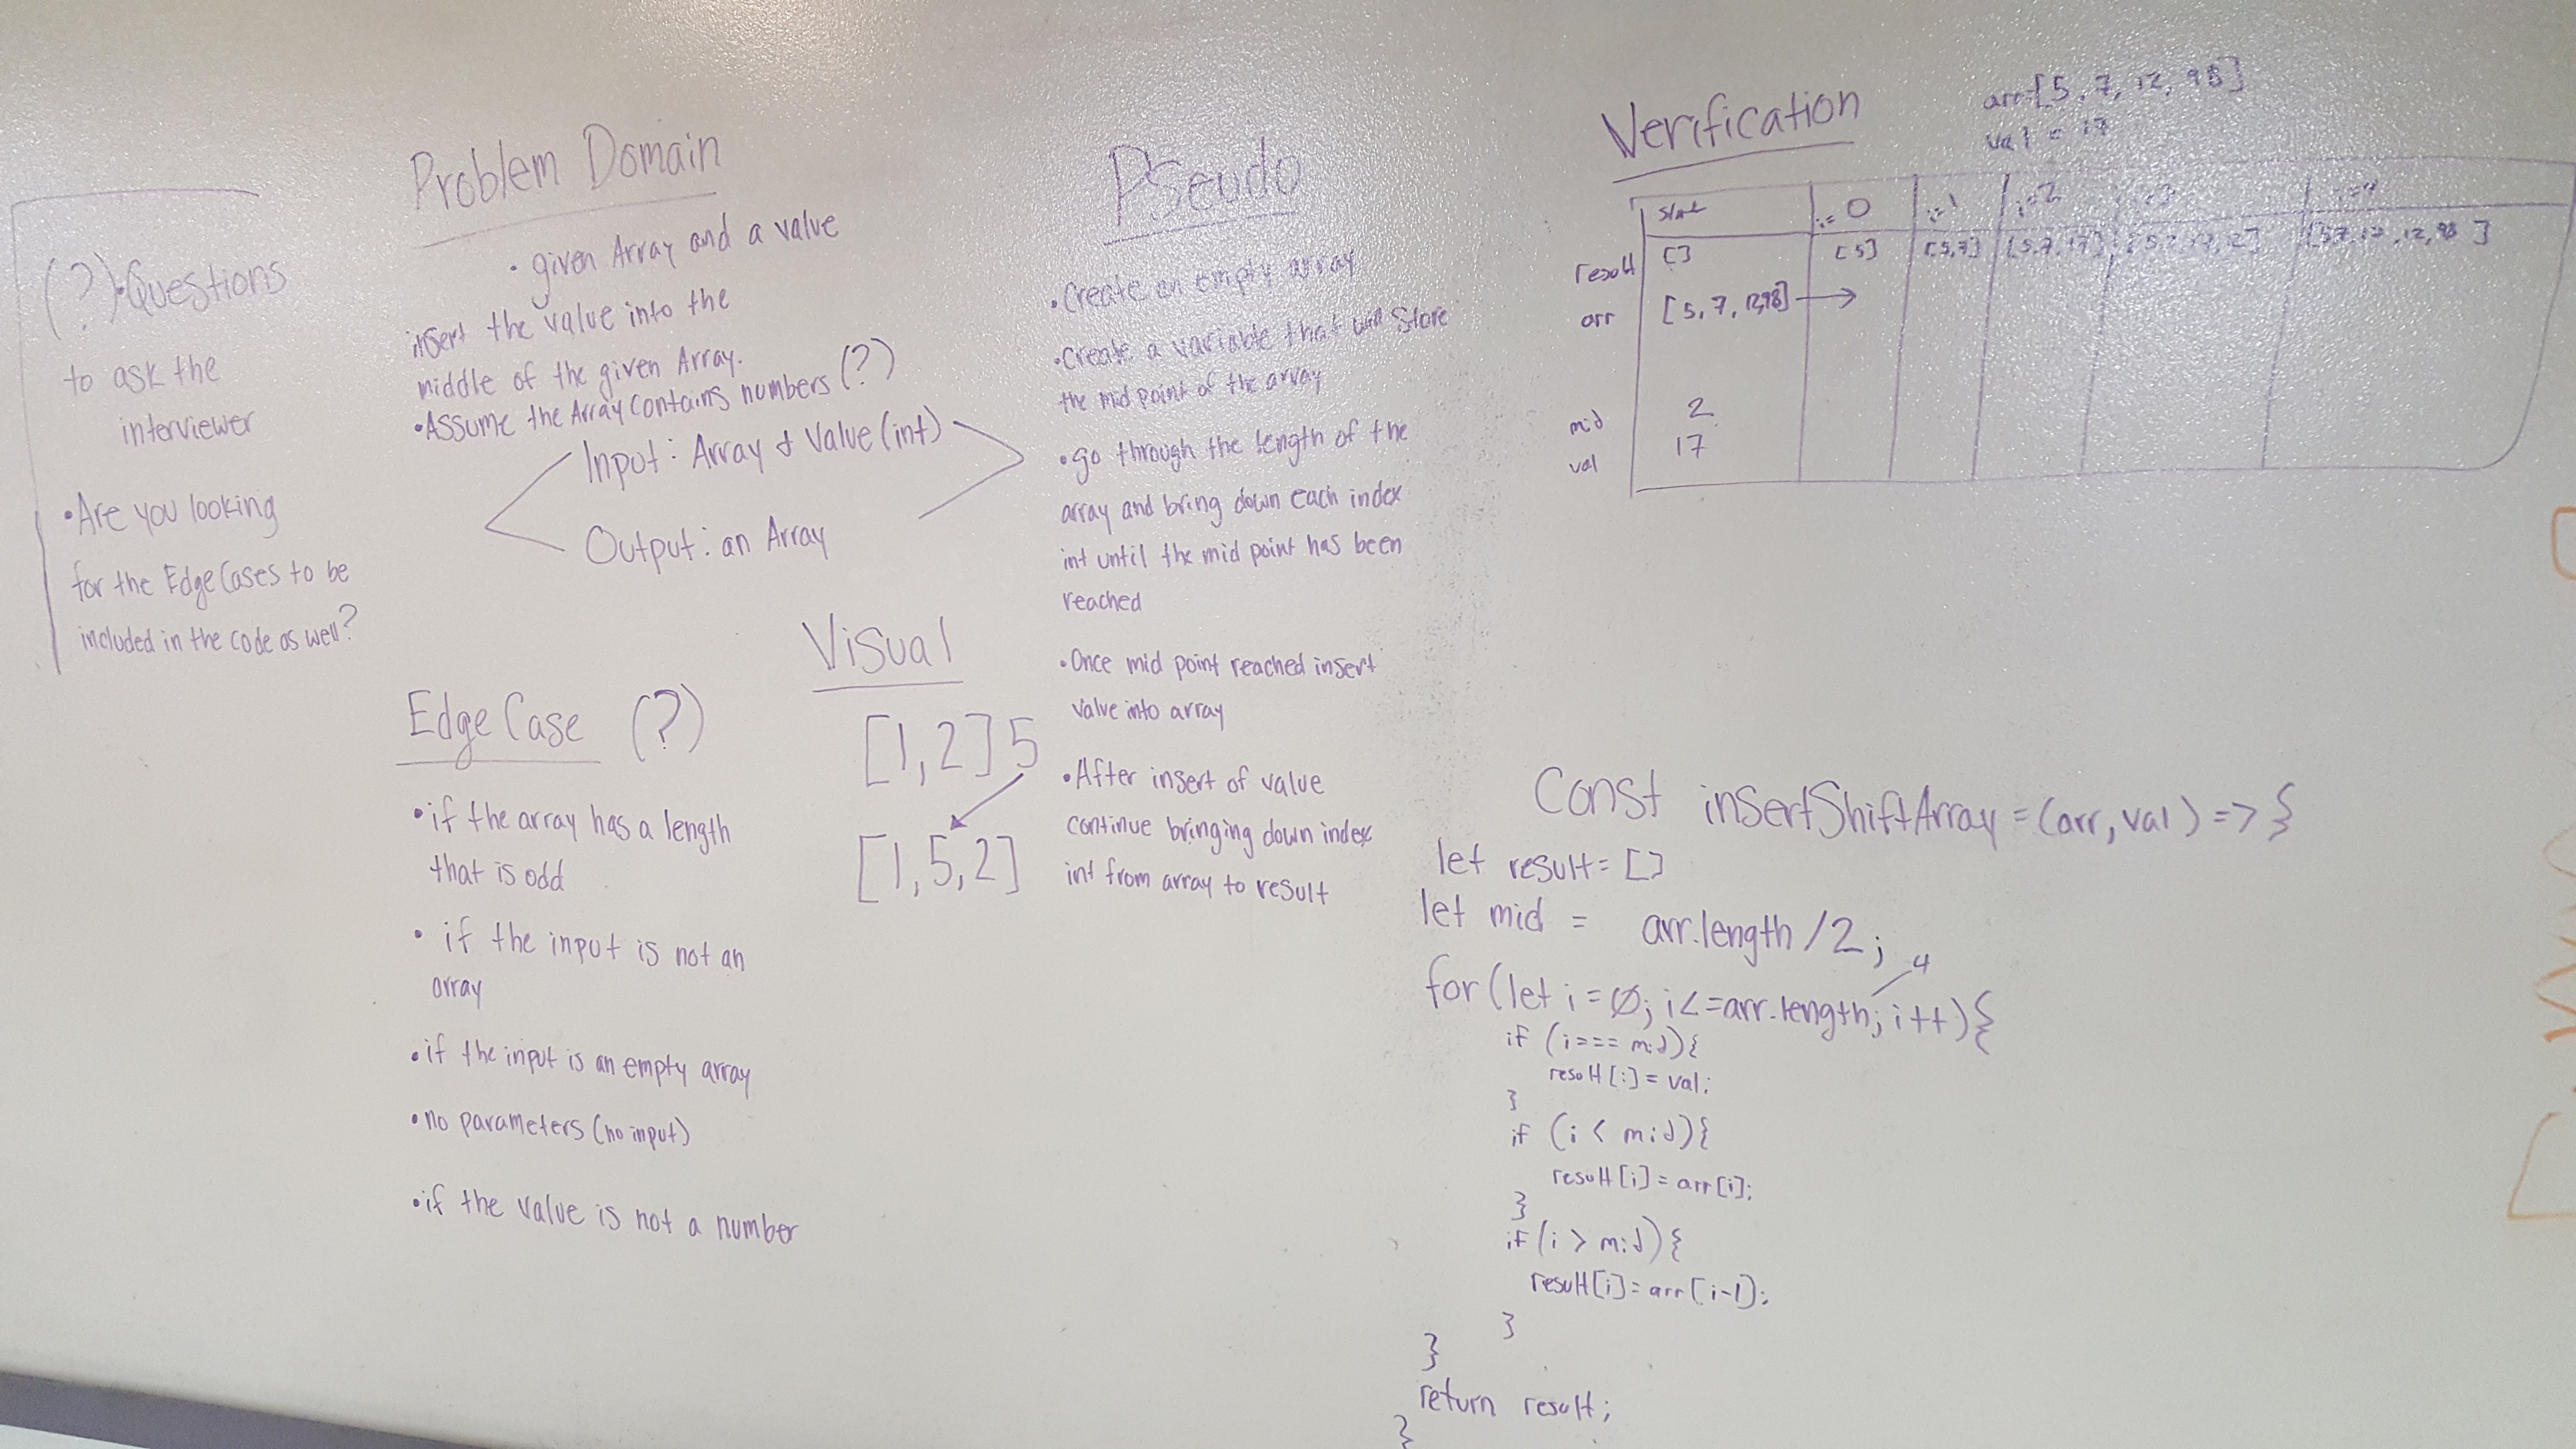 (?)•Questions
to ask the
interviewer
•Are you looking
for the Edge Cases to be
included in the code as well?
Problem Domain
• given Array and a value
insert the value into the
middle of the given Array.
•Assume the Array contains numbers (?)
Input: Array & Value (int)
Output: an Array
Edge Case (?)
•if the array has a length
that is odd
• if the input is not an
array
•if the input is an empty array
•no parameters (no input)
•if the value is not a number
Visual
[1,2]5
[1,5,2]
PSeudo
•Create an empty array
•Create a variable that will Store
the mid point of the array
•go through the length of the
array and bring down each index
int until the mid point has been
reached
•Once mid point reached insert
value into array
•After insert of value
continue bringing down index
int from array to result
Verification
arr=[5, 7, 12, 98]
val = 17
start i=0 i=1 i=2 i=3 i=4
result [] [5] [5,7] [5,7,17] [5,7,17,12] [5,7,17,12,98]
arr [5, 7, 12,98]
mid 2
val 17
Const insertShiftArray = (arr, val) => {
let result = []
let mid = arr.length /2;
4
for (let i = 0; i<=arr.length; i++){
if (i=== mid){
result[i] = val;
}
if (i < mid){
result[i] = arr[i];
}
if (i > mid){
result[i] = arr[i-1);
}
}
return result;
}